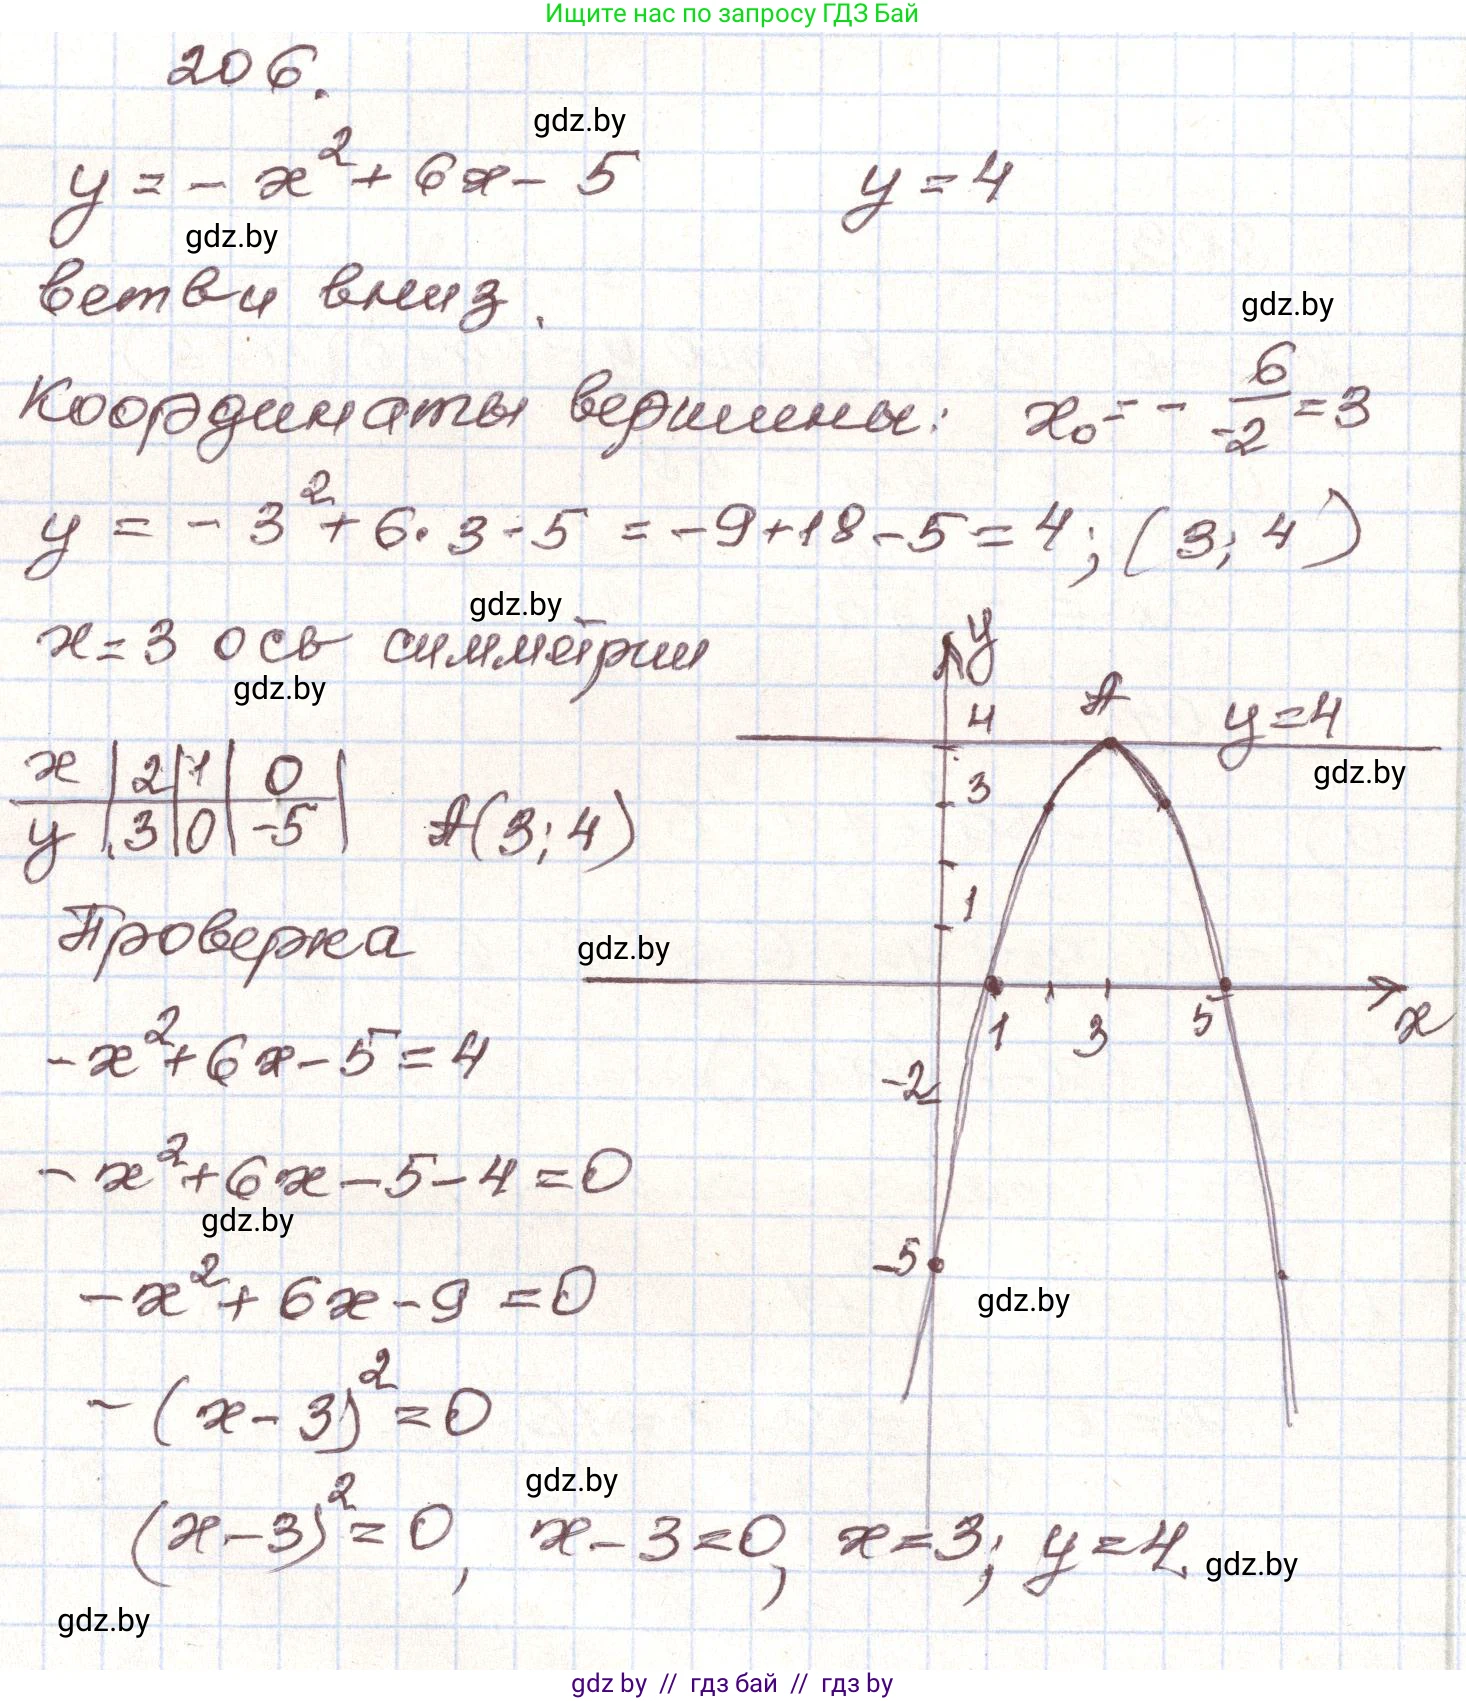 Ищите нас по запросу ГДЗ Бай
206.
gdz.by
y = - x² + 6x - 5 y = 4
gdz.by
ветви вниз.
gdz.by
Координаты вершины: x₀ = - 6/-2 = 3
y = - 3² + 6 · 3 - 5 = -9 + 18 - 5 = 4; (3; 4)
gdz.by
x = 3 ось симметрии
gdz.by
y
A
4
y = 4
gdz.by
x | 2 | 1 | 0 |
y | 3 | 0 | -5 | A(3; 4)
3
1
Проверка
gdz.by
1 3 5 x
-x² + 6x - 5 = 4
-2
-x² + 6x - 5 - 4 = 0
gdz.by
-5
-x² + 6x - 9 = 0
gdz.by
- (x - 3)² = 0
gdz.by
(x - 3)² = 0, x - 3 = 0, x = 3; y = 4.
gdz.by
gdz.by
gdz by // гдз бай // гдз by